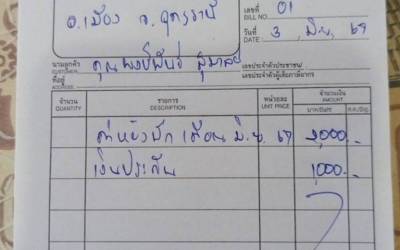 อ.เมือง จ.อุดรธานี
เลขที่ 01
BILL NO.
วันที่ 3 มิ.ย. 69
DATE
นามลูกค้า คุณ
CUSTOMER
เลขประจำตัวประชาชน/
ที่อยู่ เลขประจำตัวผู้เสียภาษีอากร
ADDRESS
จำนวน รายการ หน่วยละ จำนวนเงิน
QUANTITY DESCRIPTION UNIT PRICE AMOUNT
บาท/Baht ส.ต./Stg.
ค่าห้องพัก เดือน มิ.ย. 69
เงินประกัน 1,000.-